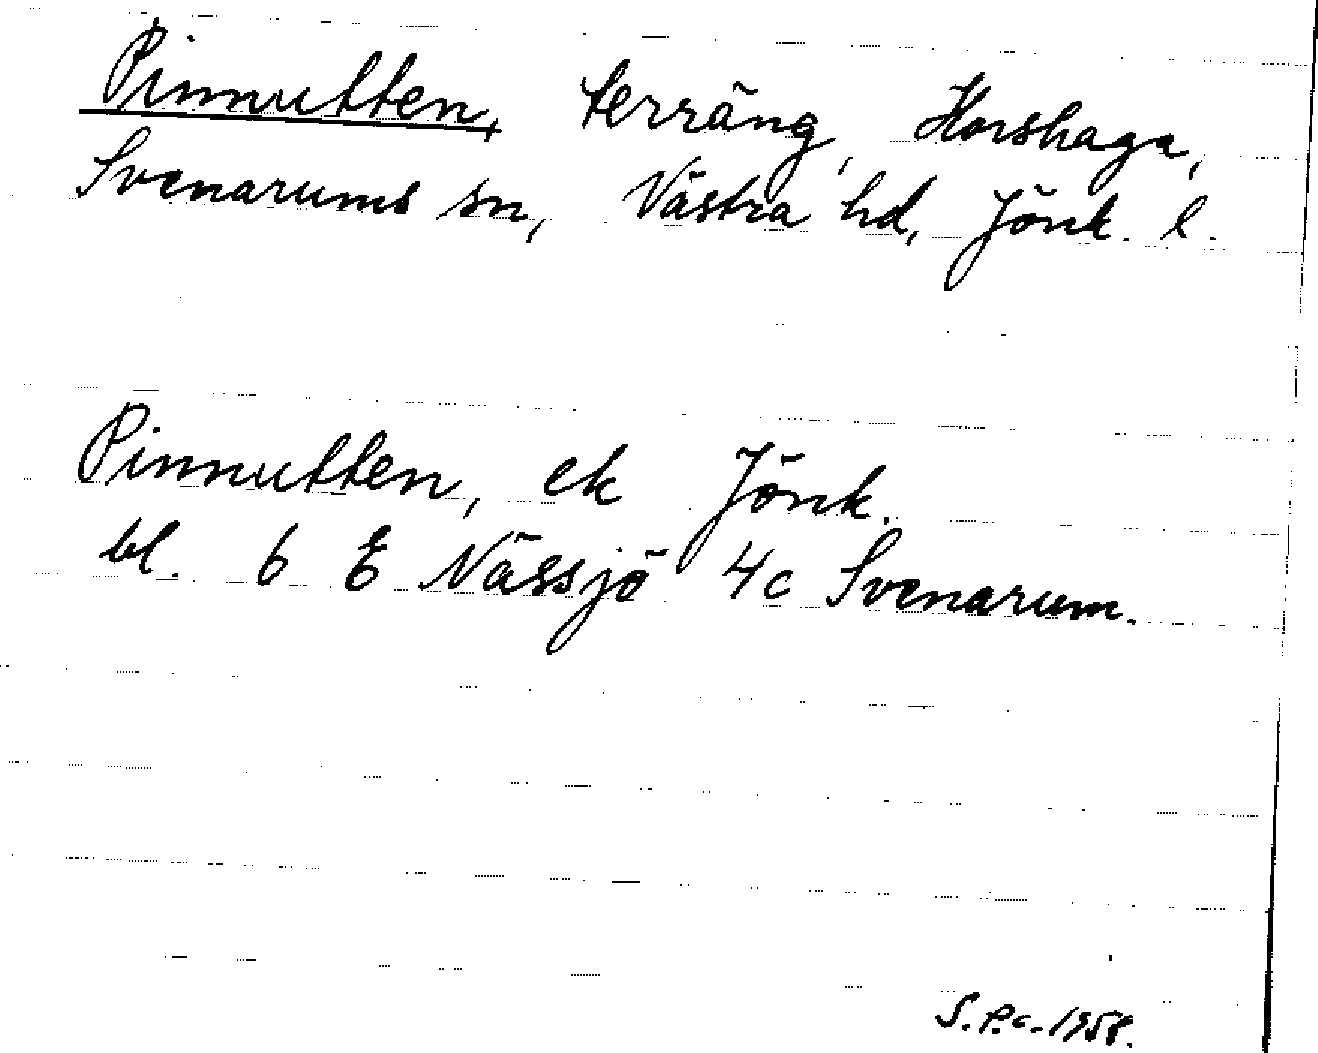 Pinnutten, terräng, Horshaga,
Svenarums sn, Västra hd, Jönk. l.
Pinnutten, ek Jönk.
bl. 6 E Nässjö 4c Svenarum.
S.P.c. 1958.